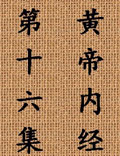 黄帝内经
第十六集